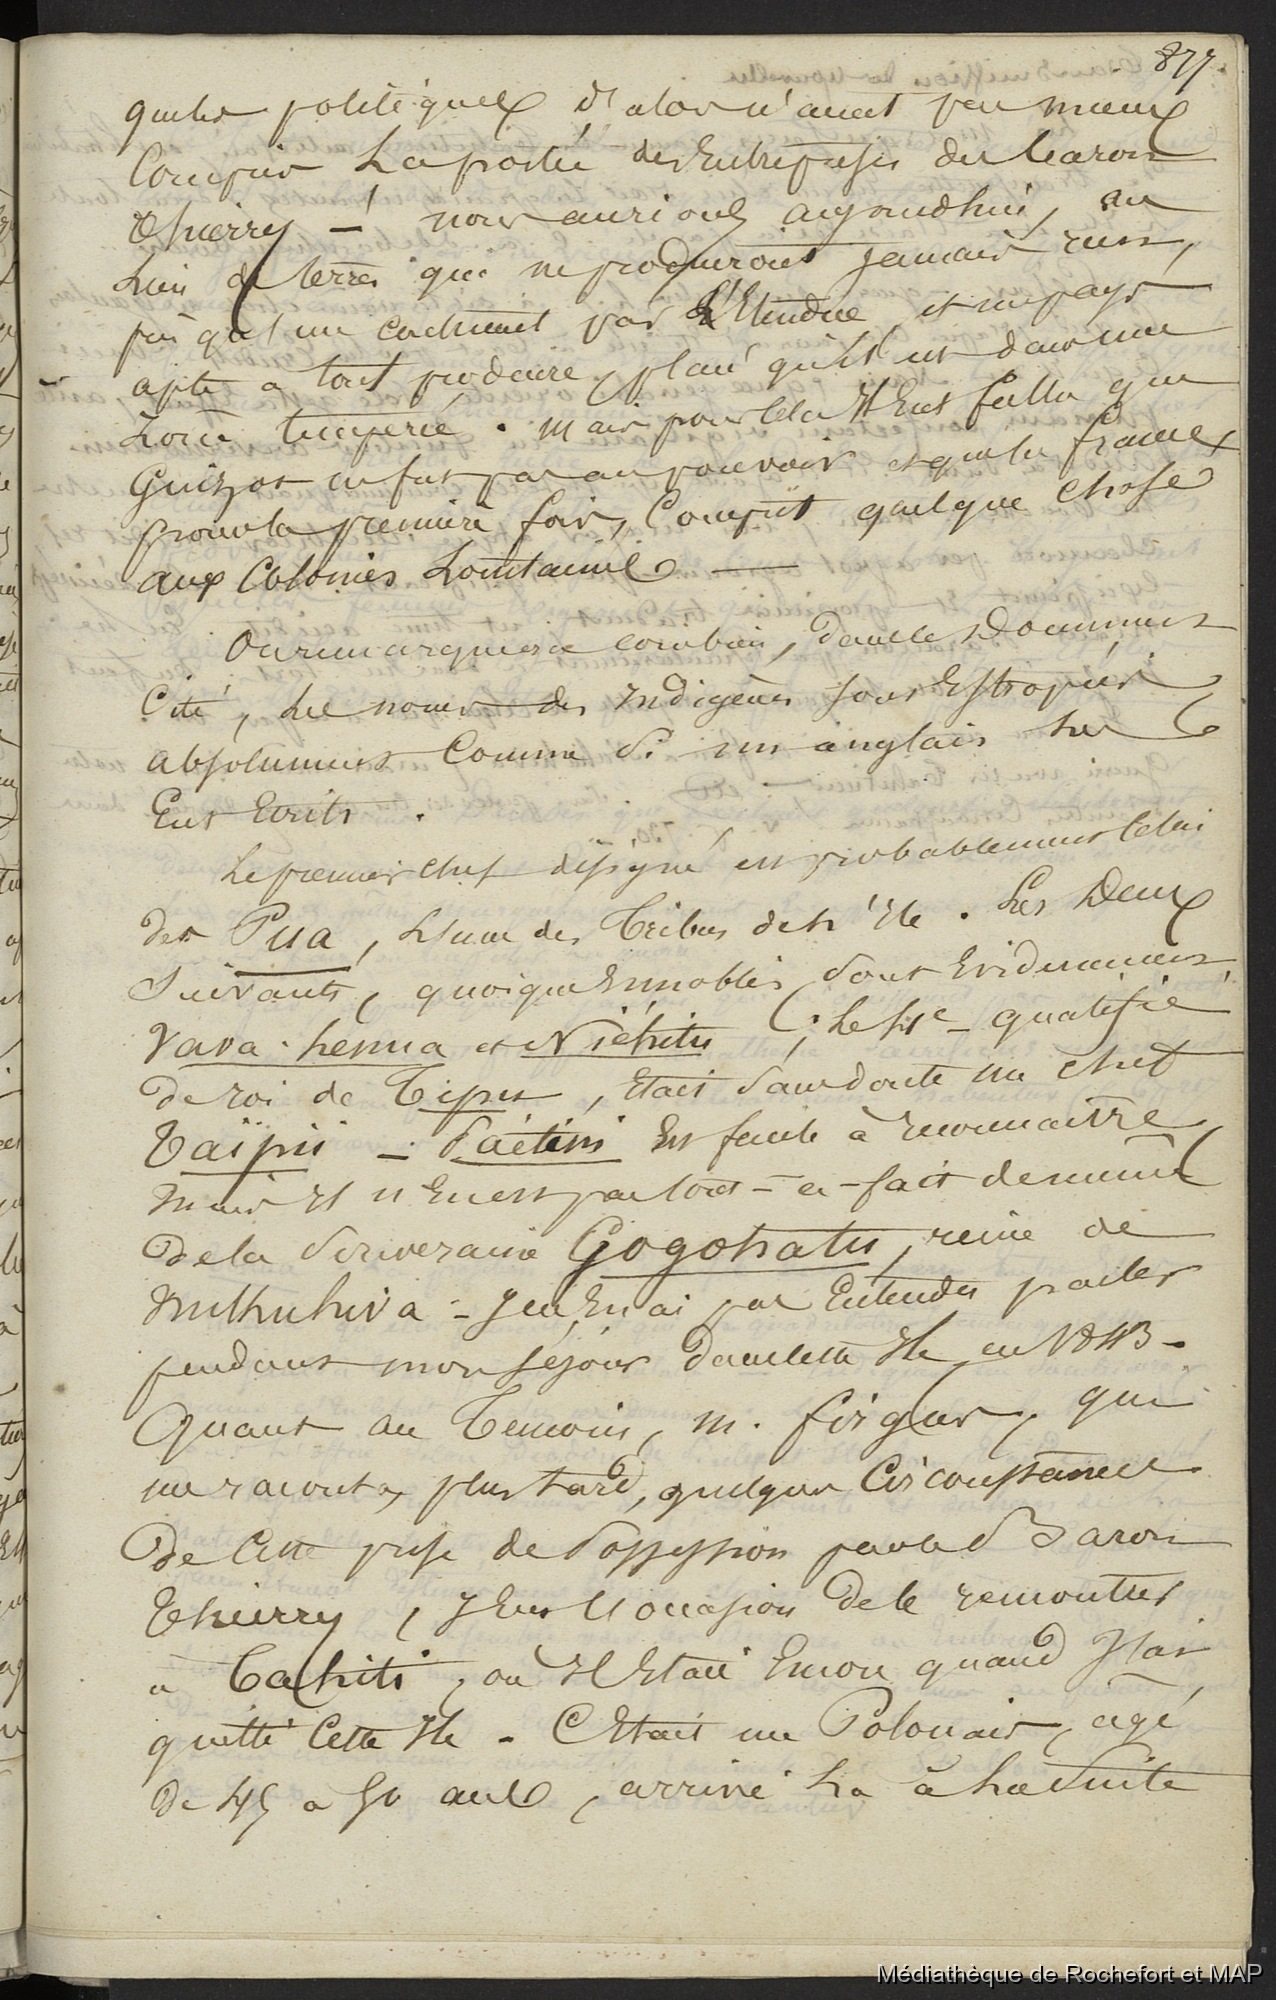 877.
que les politiques d'alors n'aient pas mieux
Compris La portée des Entreprises du baron
Thierry — ! nous aurions aujourdhui, au
Lieu de terres qui ne produiront jamais rien,
par l'Etendue, et un pays
apte a tout produire, placé qu'il est dans une
Zone tempérée. mais pour cela Il Eut fallu que
Guizot ne fut pas au pouvoir et que la france
pour la première fois, Comprit quelque chose
aux Colonies Lointaines —
On remarquera combien, dans les Documents
Cité, Les noms des Indigènes sont Estropiés
absolument Comme si un anglais les
Eut Ecrits.
Le premier chef désigné est probablement Celui
des Pua, L'une des Tribus de l'Ile. Les Deux
Suivants, quoique Ennoblis, sont Evidemment
Vava-henua et Niéhitu ; Le qualifié
De roi de Tipis, Etait sans doute un chef
Taïpii — Paétini Est facile à reconnaitre,
mais Il n'En est pas tout-a-fait de même
De la Souveraine Gogohatu, reine de
Nuhuhiva - Je n'En ai pas Entendu parler
pendant mon séjour dans cette Ile en 1843 -
Quant au Temoin, M. , qui
me raconta, plus tard, quelques Circonstances
De Cette prise de Possession par le Baron
Thierry, J'Eus l'occasion De le rencontrer
à Tahiti, où Il Etait Encore quand J'ai
quitté Cette Ile - C'Etait un Polonais, agé
De 45 a 50 ans, arrivé La à La Suite
Médiathèque de Rochefort et MAP